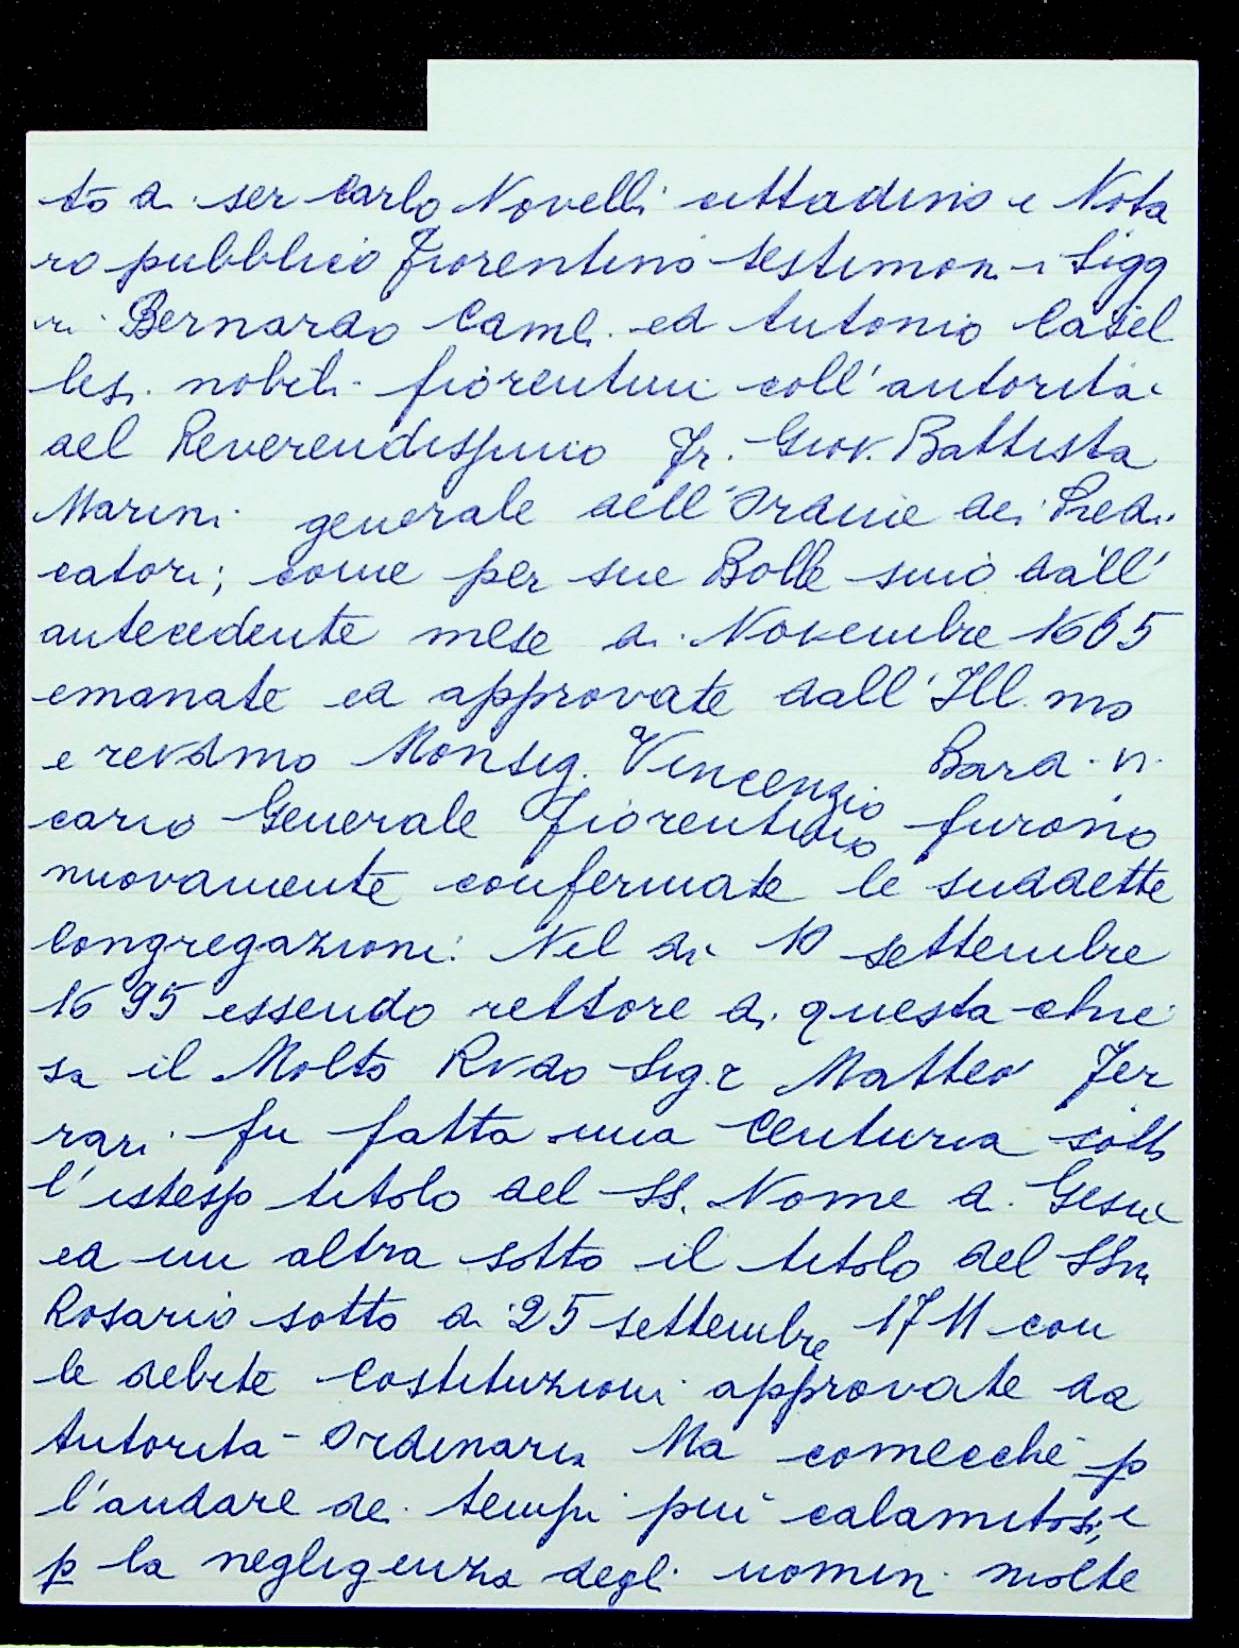 to da ser Carlo Novelli cittadino e Nota
ro pubblico Fiorentino testimoni i Sigg
ri Bernardo Cambi ed Antonio Castel
lesi nobili fiorentini coll'autorità
del Reverendissimo Fr. Giov. Battista
Marini generale dell'Ordine dei Predi
catori; come per sue Bolle sino dall'
antecedente mese di Novembre 1665
emanate ed approvate dall'Ill.mo
e revdmo Monsig. Vincenzio Bardi vi
cario Generale Fiorentino furono
nuovamente confermate le suddette
Congregazioni: Nel di 10 settembre
1695 essendo rettore di questa chie
sa il Molto Rvdo Sig.r Matteo Fer
rari fu fatta una Centuria sotto
l'istesso titolo del SS. Nome di Gesù
ed un altra sotto il titolo del SSm
Rosario sotto di 25 settembre 1711 con
le debite Costituzioni approvate da
Autorità Ordinaria Ma comecchè p
l'andare dei tempi più calamitosi, e
p la negligenza degli uomini molte